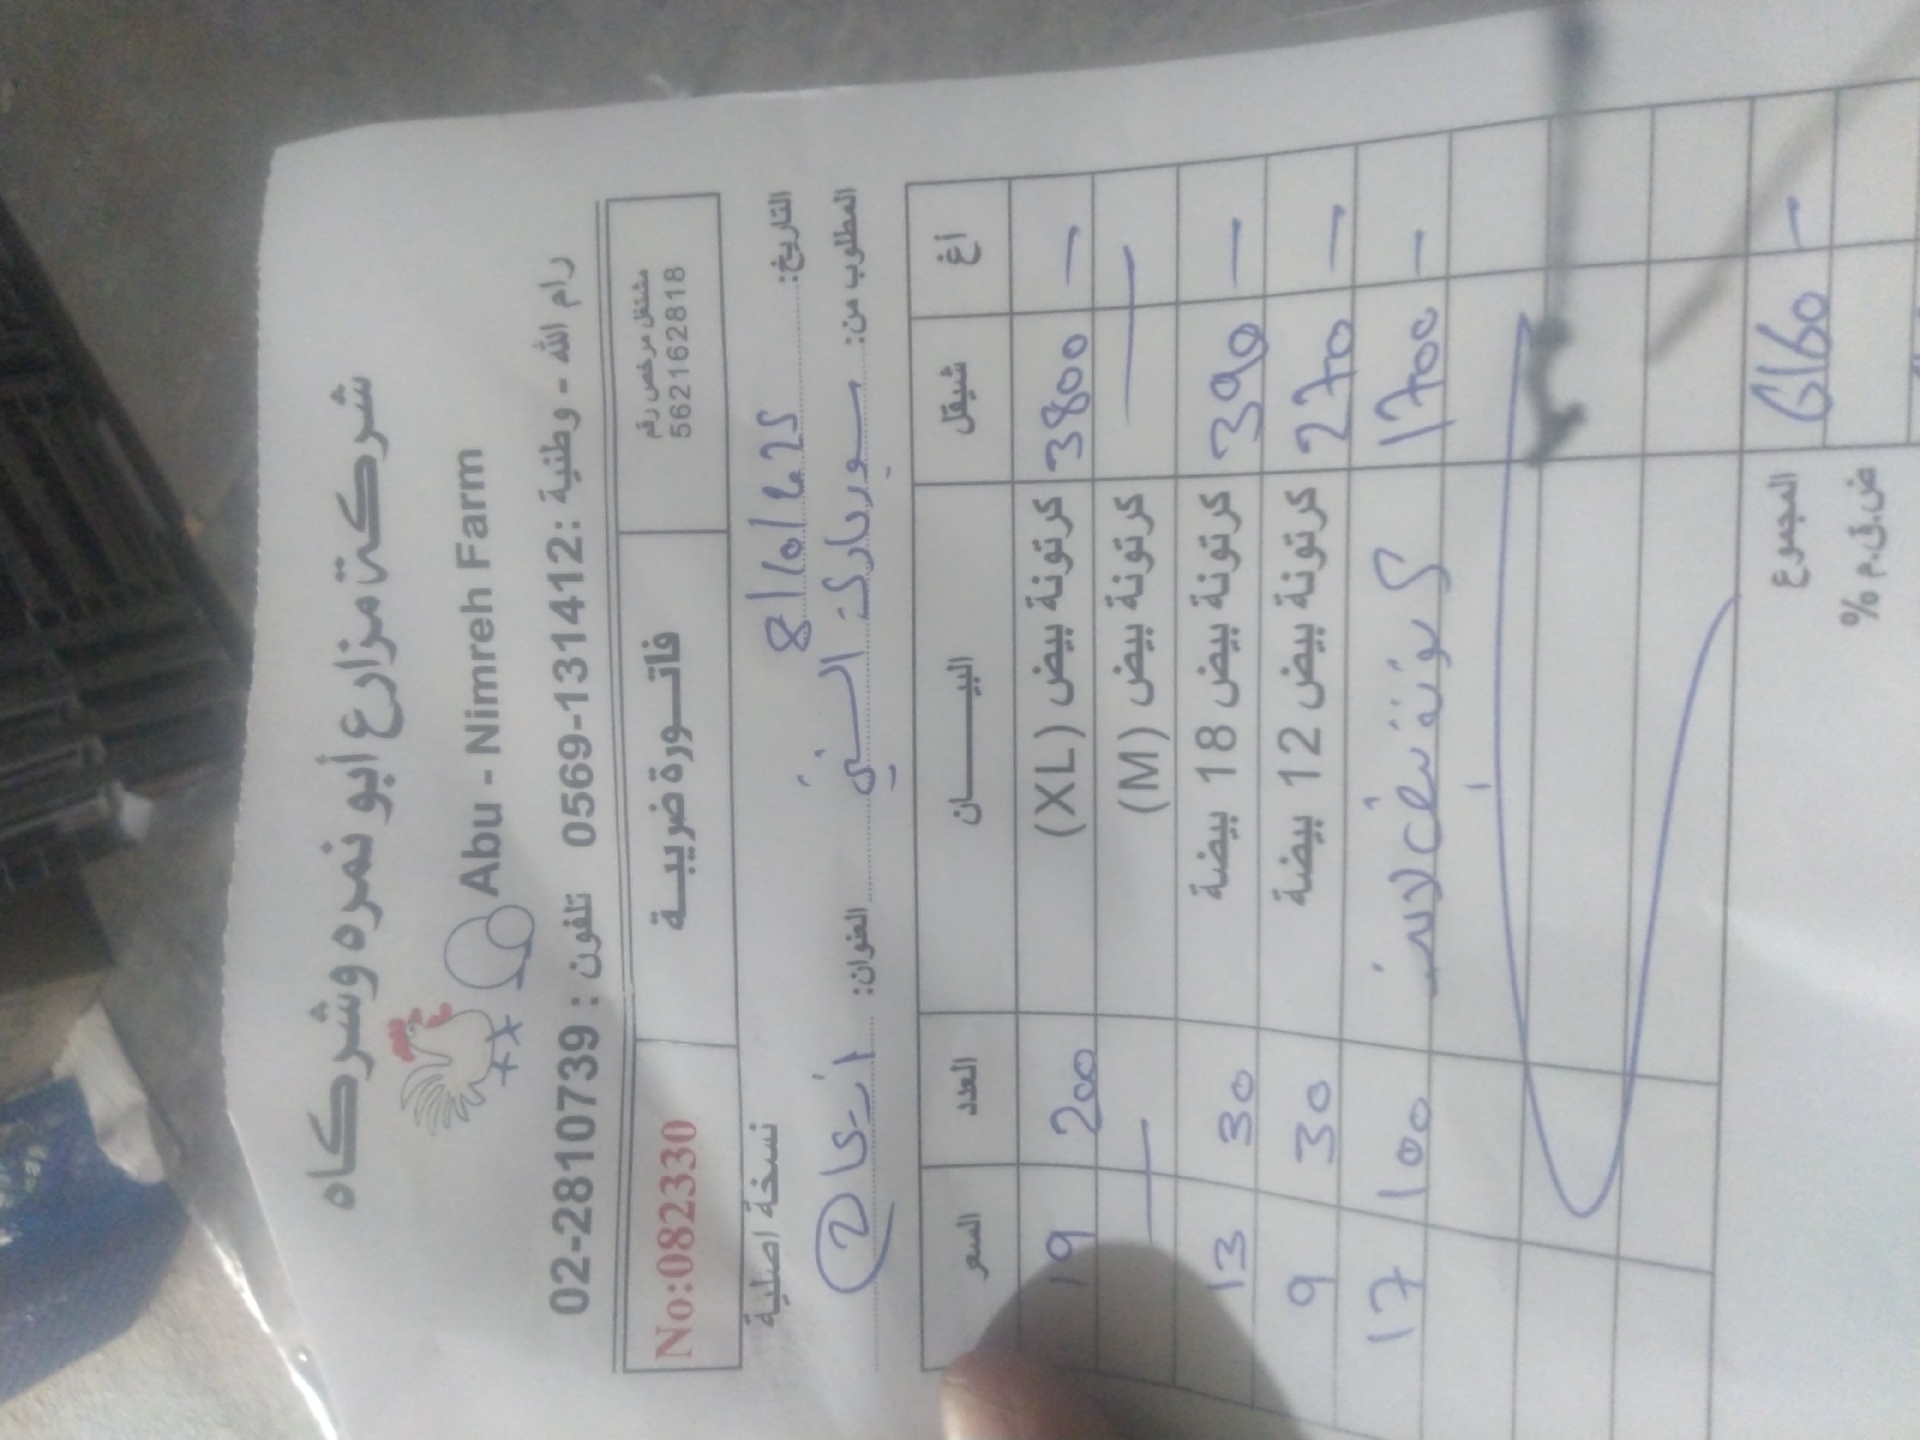 شركة مزارع أبو نمره وشركاه
Abu - Nimreh Farm
رام الله - وطنية : 0569-131412 تلفون : 02-2810739
مشتغل مرخص رقم
562162818
فاتورة ضريبية
No:082330
التاريخ: 8/10/2025 نسخة اصلية
المطلوب من: سوبرماركت السني العنوان:
أغ شيقل البيان العدد السعر
- 3800 كرتونة بيض (XL) 200 19
— كرتونة بيض (M) —
- 390 كرتونة بيض 18 بيضة 30 13
- 270 كرتونة بيض 12 بيضة 30 9
- 1700 100 17
- 6160 المجموع
ض.ق.م %